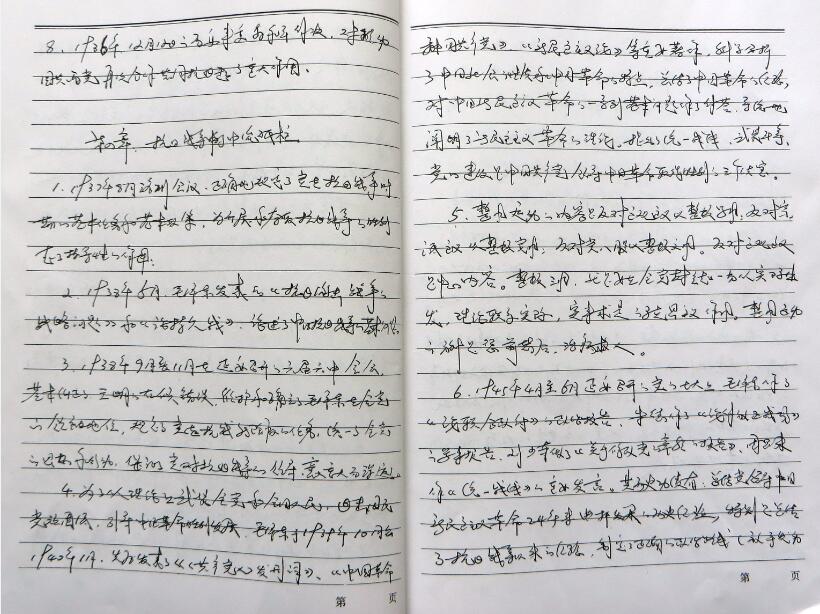 8. 1936年12月12日西安事变的和平解决，对推动
国共两党再次合作共同抗日起了重大作用。
第四章、抗日战争的中流砥柱
1. 1937年8月洛川会议，正确地规定了党在抗日战争时
期的基本任务和基本政策，为
在了指导性的作用。
2. 1938年6月，毛泽东发表了《抗日游击战争的
战略问题》和《论持久战》，论述了中国抗日战争的基本问
3. 1938年9月至11月在延安召开的六届六中全会，
基本纠正了王明的右倾错误，维护和确立了毛泽东在全党
的领导地位，规定了党在抗战新阶段的任务，统一了全党
的思想和行动，保证了党对抗日战争的领导，意义大而深远。
4. 为了从理论上武装全党和全国人民，回击国民
党顽固派，引导中国革命的胜利发展，毛泽东于1939年10月至
1940年1月，先后发表了《〈共产党人〉发刊词》、《中国革命
和中国共产党》《新民主主义论》等重要著作，科学分析
了中国社会性质和中国革命的特点，总结了中国革命的经验，
对中国新民主主义革命的一系列基本问题作了解答，系统地
阐明了新民主主义革命的理论，指出统一战线、武装斗争、
党的建设是中国共产党领导中国革命取得胜利的三个法宝。
5. 整风运动的内容是反对主观主义以整顿学风，反对宗
派主义以整顿党风，反对党八股以整顿文风。反对主观主义
是中心内容。整顿三风，
发，理论联系实际，实事求是的
的 惩前毖后，治病救人。
6. 1945年4月至6月延安召开的党的七大上，毛泽东作了
《论联合政府》的政治报告，朱德作了《论解放区战场》
的军事报告，刘少奇做了《关于修改党章的报告》，周恩来
作《论统一战线》的重要发言。其历史功绩有：总结党领导中国
新民主主义革命24年来曲折发展的历史经验，特别是总结
了抗日战争以来的经验，制定了正确的政治路线（放手发动
第 页
第 页